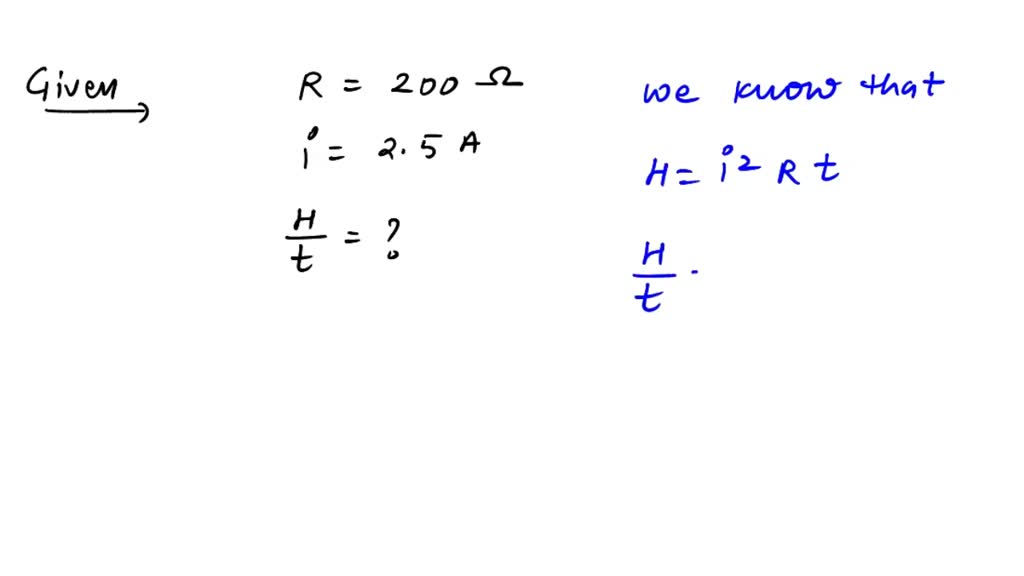 Given
R = 200 Ω
i = 2.5 A
H/t = ?
we know that
H = i² R t
H/t